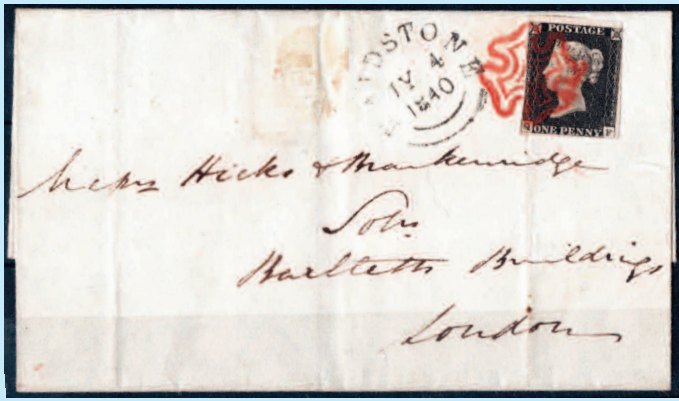 MAIDSTONE
JY 4
1840
POSTAGE
ONE PENNY
Messrs Hicks & Brakenridge
Solrs
Bartletts Buildings
London